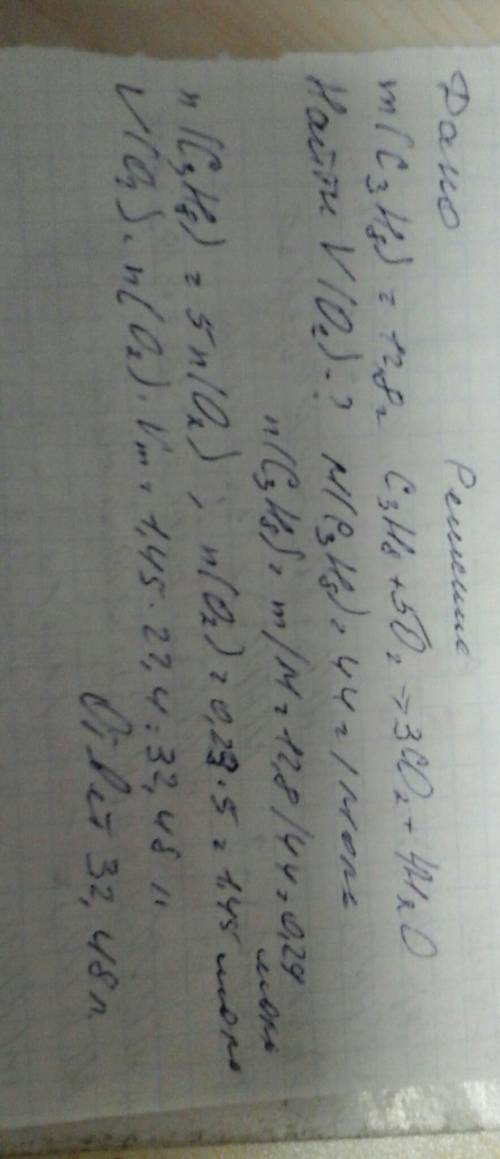 Дано Решение
m(C3H8) = 12,8 г C3H8 + 5O2 → 3CO2 + 4H2O
Найти V(O2) - ? M(C3H8) = 44 г/моль
n(C3H8) = m/M = 12,8/44 = 0,29 моль
n(C3H8) = 5n(O2); n(O2) = 0,29 · 5 = 1,45 моль
V(O2) = n(O2) · Vm = 1,45 · 22,4 = 32,48 л
Ответ 32,48 л